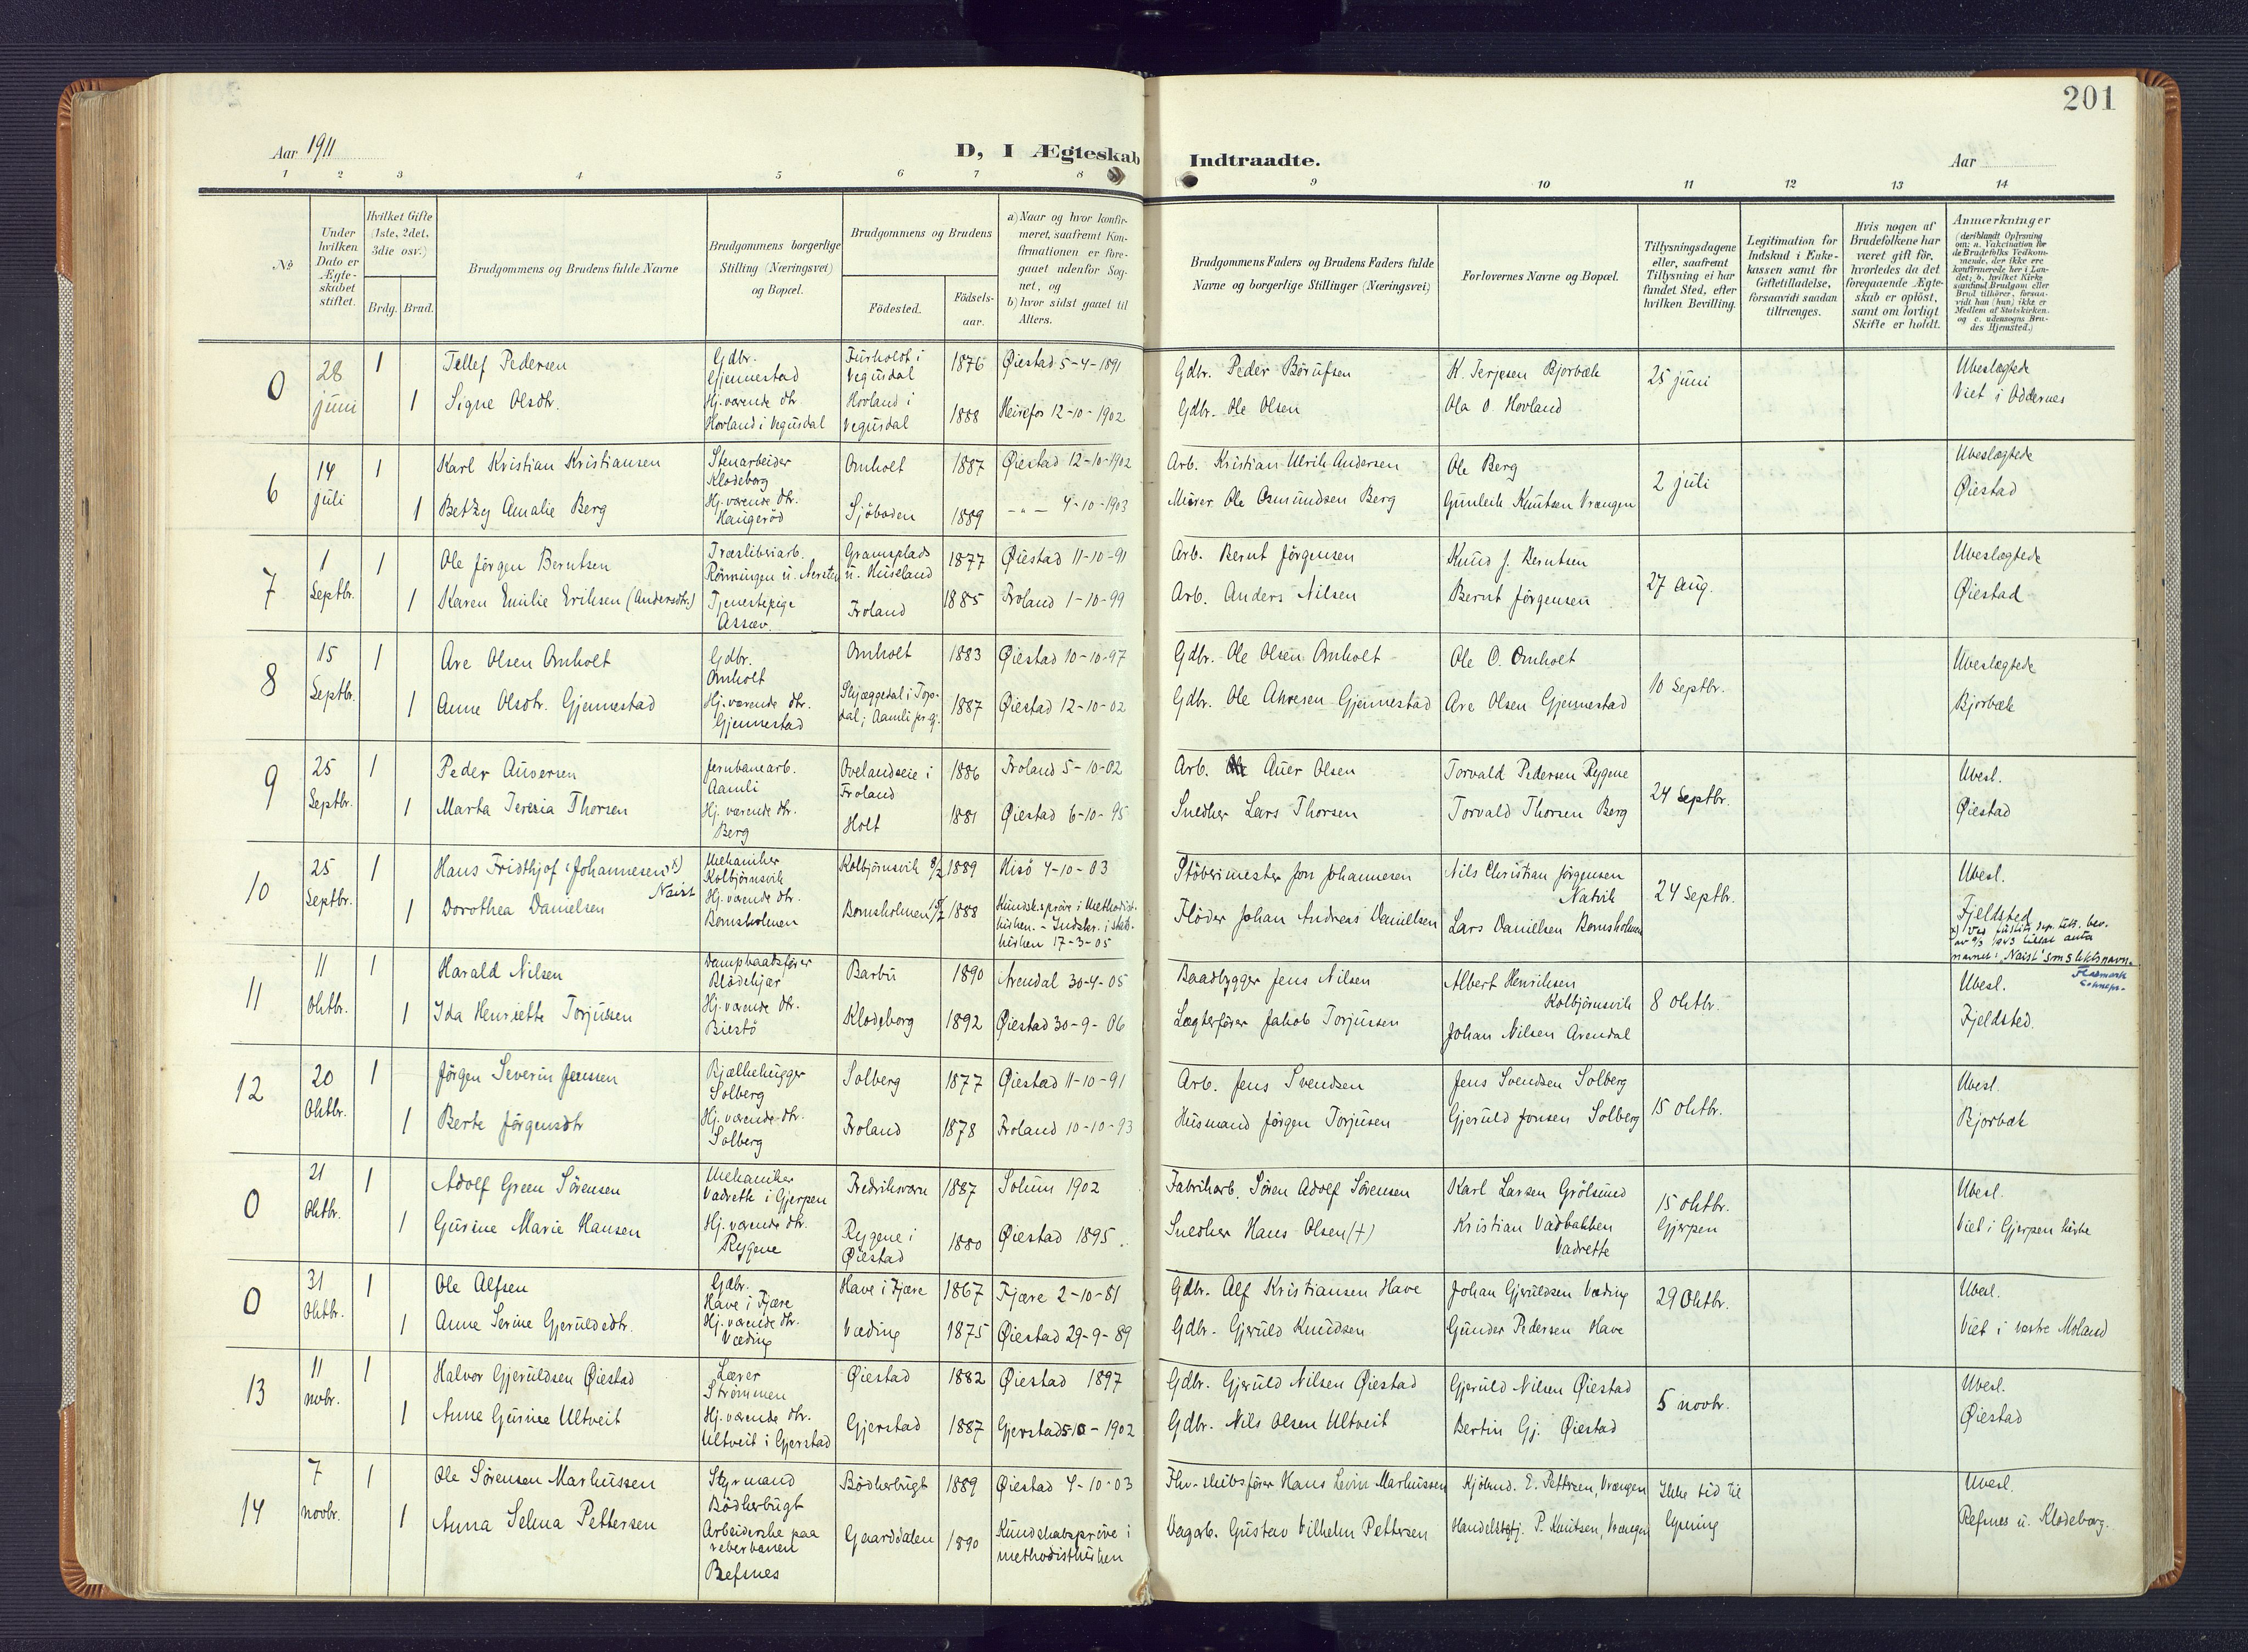 201
Aar 1911
D, I Ægteskab Indtraadte.
Aar
1 2 3 4 5 6 7 8 9 10 11 12 13 14
No
Under hvilken Dato er Ægteskabet stiftet.
Hvilket Gifte (1ste, 2det, 3die osv.)
Brdg. Brud.
Brudgommens og Brudens fulde Navne
Brudgommens borgerlige Stilling (Næringsvei) og Bopæl.
Brudgommens og Brudens
Födested.
Födsels-aar.
a) Naar og hvor konfirmeret, saafremt Konfirmationen er foregaaet udenfor Sognet, og
b) hvor sidst gaaet til Alters.
Brudgommens Faders og Brudens Faders fulde Navne og borgerlige Stillinger (Næringsvei)
Forlovernes Navne og Bopæl.
Tillysningsdagene eller, saafremt Tillysning ei har fundet Sted, efter hvilken Bevilling.
Legitimation for Indskud i Enkekassen samt for Giftetilladelse, forsaavidt saadan tiltrænges.
Hvis nogen af Brudefolkene har været gift för, hvorledes da det foregaaende Ægteskab er oplöst, samt om lovligt Skifte er holdt.
Anmærkninger (deriblandt Oplysning om: a. Vakcination for de Brudefolks Vedkommende, der ikke ere konfirmerede her i Landet; b. hvilket Kirkesamfund Brudgom eller Brud tilhører, forsaavidt han (hun) ikke er Medlem af Statskirken, og c. udensogns Brudes Hjemsted.)
0 28 juni 1 Tellef Pedersen Gdbr. Gjennestad Furholdt i Vegusdal 1876 Øiestad 5-4-1891 Gdbr. Peder Börufsen K. Terjesen Bjorbæk 25 juni Ubeslægtede
1 Signe Olsdtr. Hj.værende dtr. Hovland i Vegusdal Hovland i Vegusdal 1888 Heirefos 12-10-1902 Gdbr. Ole Olsen Ola O. Hovland Viet i Oddernes
6 14 juli 1 Karl Kristian Kristiansen Stenarbeider Klodeborg Omholt 1887 Øiestad 12-10-1902 Arb. Kristian Ulrik Andersen Ole Berg 2 juli Ubeslægtede
1 Betzy Amalie Berg Hj.værende dtr. Haugeröd Sjöboden 1889 -"- 4-10-1903 Murer Ole Osmundsen Berg Gunleik Knutsen Vrængen Øiestad
7 1 Septbr. 1 Ole Jörgen Berntsen Træsliberiarb. Rönningen u. Nersten Gramsplads u. Huseland 1877 Øiestad 11-10-91 Arb. Bernt Jörgensen Knud J. Berntsen 27 aug. Ubeslægtede
1 Karen Emilie Eriksen (Andersdtr.) Tjenestepige Assæv. Froland 1885 Froland 1-10-99 Arb. Anders Nilsen Bernt Jörgensen Øiestad
8 15 Septbr. 1 Are Olsen Omholt Gdbr. Omholt Omholt 1883 Øiestad 10-10-97 Gdbr. Ole Olsen Omholt Ole O. Omholt 10 Septbr. Ubeslægtede
1 Anne Olsdtr. Gjennestad Hj.værende dtr. Gjennestad Skjæggedal i Topdal; Aamli pr.gj. 1887 Øiestad 12-10-02 Gdbr. Ole Akresen Gjennestad Are Olsen Gjennestad Bjorbæk
9 25 Septbr. 1 Peder Auversen Jernbanearb. Aamli Ovelandseie i Froland 1886 Froland 5-10-02 Arb. Auer Olsen Torvald Pedersen Rygene 24 Septbr. Ubesl.
1 Marta Teresia Thorsen Hj.værende dtr. Berg Holt 1881 Øiestad 6-10-95 Snedker Lars Thorsen Torvald Thorsen Berg Øiestad
10 25 Septbr. 1 Hans Fridthjof (Johannesen) x) Naist Mekaniker Kolbjörnsvik Kolbjörnsvik 8/2 1889 Hisö 4-10-03 Stöberimester Jon Johannesen Nils Christian Jörgensen Natvik 24 Septbr. Ubesl.
1 Dorothea Danielsen Hj.værende dtr. Bomsholmen Bomsholmen 1888 Kundsk.pröve i Methodistkirken. - Indskr. i statskirken 17-3-05 Flöder Johan Andreas Danielsen Lars Danielsen Bomsholmen Fjeldsted
x) Ved justits dep. tets. bev. av 9/3 1943 tillat anta navnet: "Naist" som slektsnavn.
11 11 Oktbr. 1 Harald Nilsen Dampbaadsförer Blödekjær Barbu 1890 Arendal 30-4-05 Baadbygger Jens Nilsen Albert Henriksen Kolbjörnsvik 8 oktbr. Ubesl.
1 Ida Henriette Torjussen Hj.værende dtr. Biestö Klodeborg 1892 Øiestad 30-9-06 Lægterförer Jakob Torjussen Johan Nilsen Arendal Fjeldsted.
12 20 Oktbr. 1 Jörgen Severin Jenssen Bjælkehugger Solberg Solberg 1877 Øiestad 11-10-91 Arb. Jens Svendsen Jens Svendsen Solberg 15 oktbr. Ubesl.
1 Berte Jörgensdtr Hj.værende dtr. Solberg Froland 1878 Froland 10-10-93 Husmand Jörgen Torjusen Gjeruld Jonsen Solberg Bjorbæk
0 21 Oktbr. 1 Adolf Green Sörensen Mekaniker Vadrette i Gjerpen Fredriksværn 1887 Solum 1902 Fabrikarb. Sören Adolf Sörensen Karl Larsen Grölsund 15 oktbr. Gjerpen Ubesl.
1 Gurine Marie Hansen Hj.værende dtr. Rygene Rygene i Øiestad 1880 Øiestad 1895. Snedker Hans Olsen (†) Kristian Vadbakken Vadrette Viet i Gjerpen kirke
0 31 Oktbr. 1 Ole Alfsen Gdbr. Have i Fjære Have i Fjære 1867 Fjære 2-10-81 Gdbr. Alf Kristiansen Have Johan Gjeruldsen Væding 29 Oktbr. Ubesl.
1 Anne Serine Gjeruldsdtr. Hj.værende dtr. Væding Væding 1875 Øiestad 29-9-89 Gdbr. Gjeruld Knudsen Gunder Pedersen Have Viet i vestre Moland
13 11 novbr. 1 Halvor Gjeruldsen Øiestad Lærer Strömmen Øiestad 1882 Øiestad 1897 Gdbr. Gjeruld Nilsen Øiestad Gjeruld Nilsen Øiestad 5 novbr. Ubesl.
1 Anne Gurine Ultveit Hj.værende dtr. Ultveit i Gjerstad Gjerstad 1887 Gjerstad 5-10-1902 Gdbr. Nils Olsen Ultveit Bertin Gj. Øiestad Øiestad
14 7 novbr. 1 Ole Sörensen Markussen Styrmand Bödkerbugt Bödkerbugt 1889 Øiestad 4-10-03 Fhv. skibsförer Hans Levin Markussen Kjöbmd. E. Pettersen, Vrængen Ikke tid til lysning Ubesl.
1 Anna Selma Pettersen Arbeiderske paa reberbanen Refsnes Gaarddalen 1890 Kundskabspröve i methodistkirken Vegarb. Gustav Vilhelm Pettersen Handelsbstj. P. Knutsen, Vrængen Refsnes u. Klodeborg.